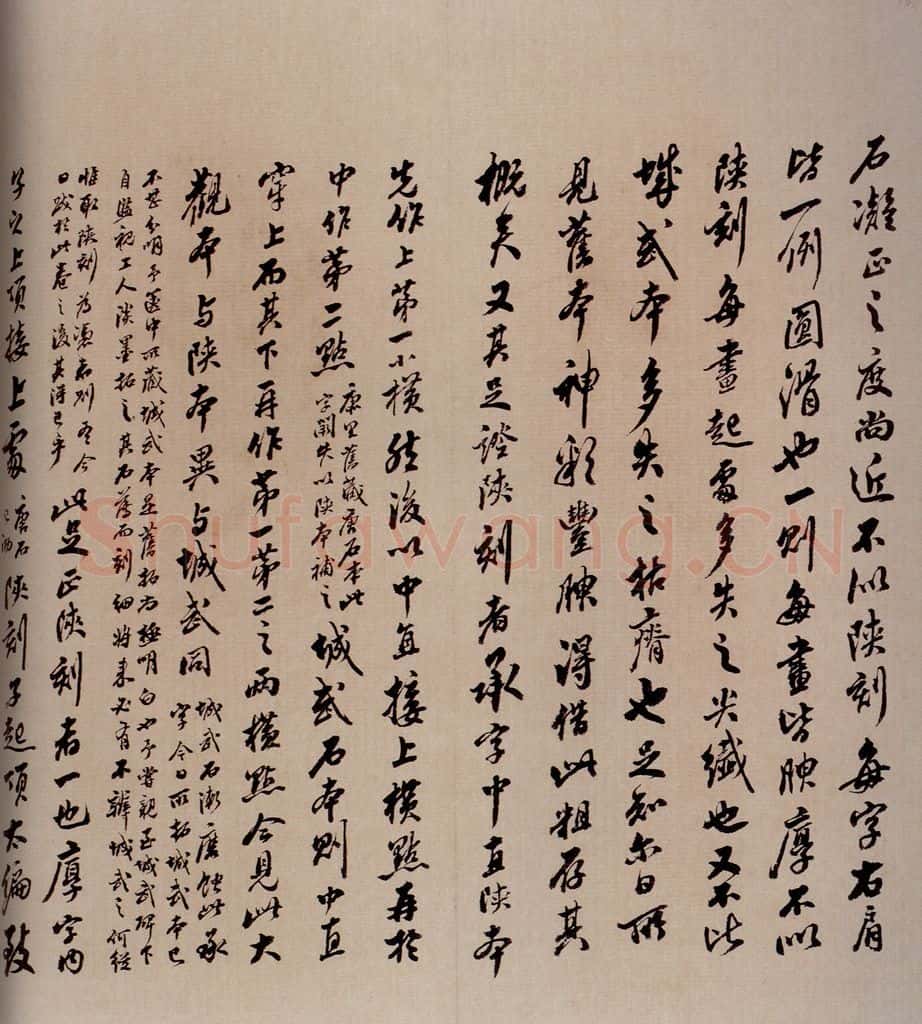 石凝正之度尚近不似陝刻每字右肩
皆一例圓滑也一則每畫皆腴厚不似
陝刻每畫起處多失之尖纖也又不比
城武本多失之枯瘠也足知尔日所
見舊本神彩豐腴得借此粗存其
概矣又其足證陝刻者承字中直陝本
先作上第一小橫然後以中直接上橫點再於
中作第二點
康里舊藏唐石本此
字闕失以陝本補之
城武石本則中直
穿上而其下再作第一第二之兩橫點今見此大
觀本与陝本異与城武同
城武石漸磨蝕此承
字今日所拓城武本已
不甚分明予篋中所藏城武本是舊拓尚極明白也予嘗親至城武碑下
自監視工人淡墨拓之其石薄而刻細將來必有不辨城武之何從
惟取陝刻為憑者則吾今
日跋於此卷之後其得已乎
此足正陝刻者一也厚字内
子之上項接上處
唐石
已泐
陝刻子起項太偏致
Shufawang.CN